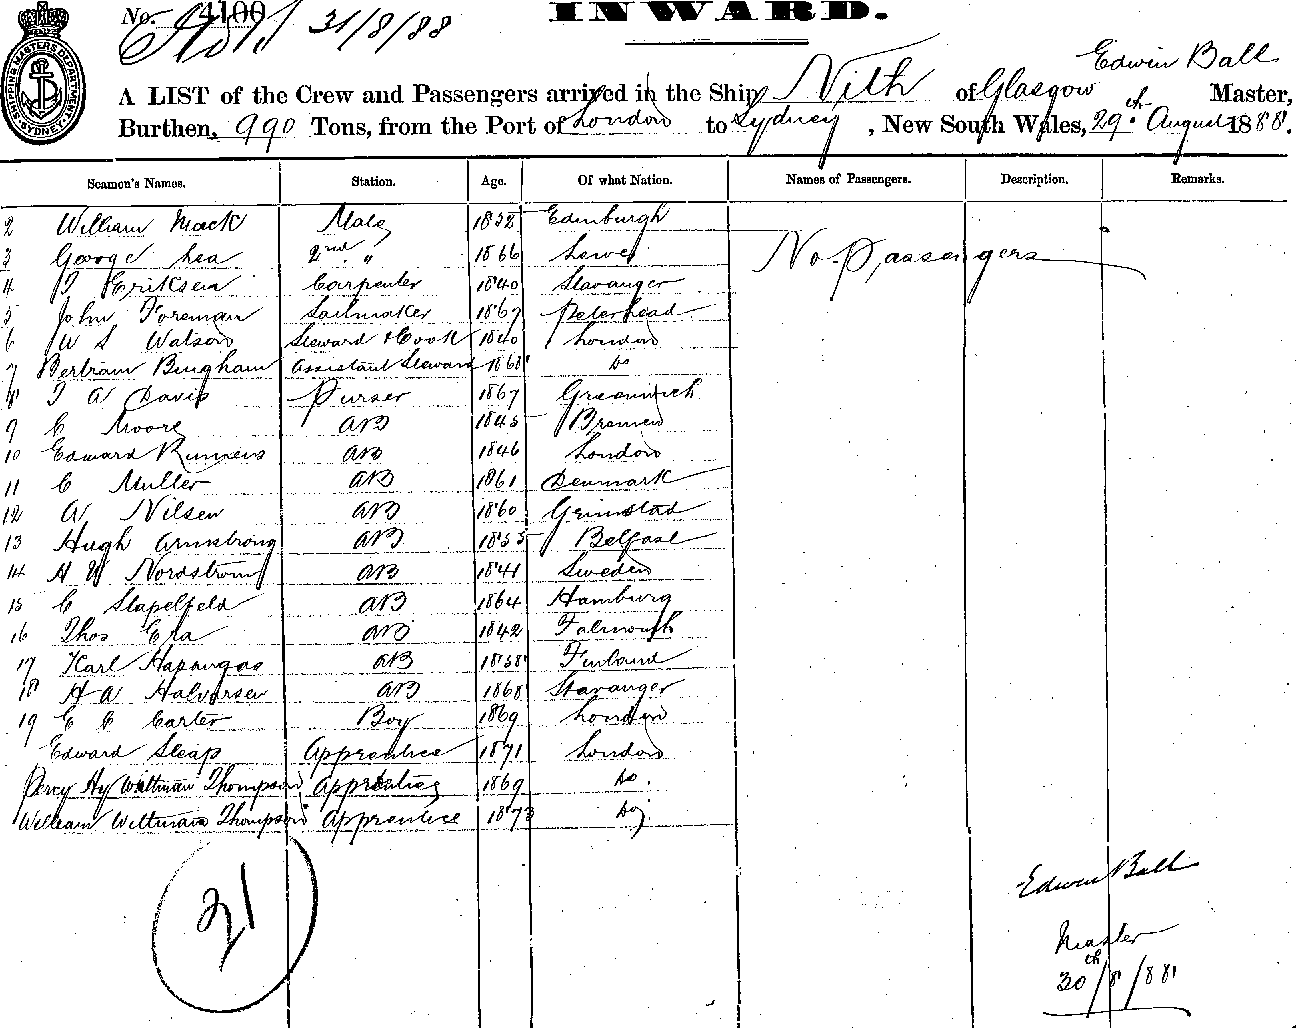 No. 4100
31/8/88
INWARD.
SHIPPING MASTERS DEPARTMENT
SYDNEY
Edwin Ball
A LIST of the Crew and Passengers arrived in the Ship Nith of Glasgow Master,
Burthen, 990 Tons, from the Port of London to Sydney, New South Wales, 29th August 1888.
Seamen's Names. Station. Age. Of what Nation. Names of Passengers. Description. Remarks.
2 William Mack Mate 1852 Edinburgh
3 George Lea 2nd " 1866 Lewes
No Passengers
4 T Eriksen Carpenter 1840 Stavanger
5 John Foreman Sailmaker 1867 Peterhead
6 W S Watson Steward & Cook 1840 London
7 Bertram Bingham Assistant Steward 1868 Do
8 T A Davis Purser 1867 Greenwich
9 C Moore AB 1845 Bremen
10 Edward Rumens AB 1846 London
11 C Muller AB 1861 Denmark
12 A Nilsen AB 1860 Grimstad
13 Hugh Armstrong AB 1855 Belfast
14 A W Nordstrom AB 1841 Sweden
15 C Stapelfeld AB 1864 Hamburg
16 Thos AB 1842 Falmouth
17 Karl AB 1858 Finland
18 H A Halvorsen AB 1868 Stavanger
19 C C Carter Boy 1869 London
Edward Sleap Apprentice 1871 London
Percy Hy Wiltman Thompson Apprentice 1869 Do.
William Wiltman Thompson Apprentice 1873 Do
21
Edwin Ball
Master
30th/8/88